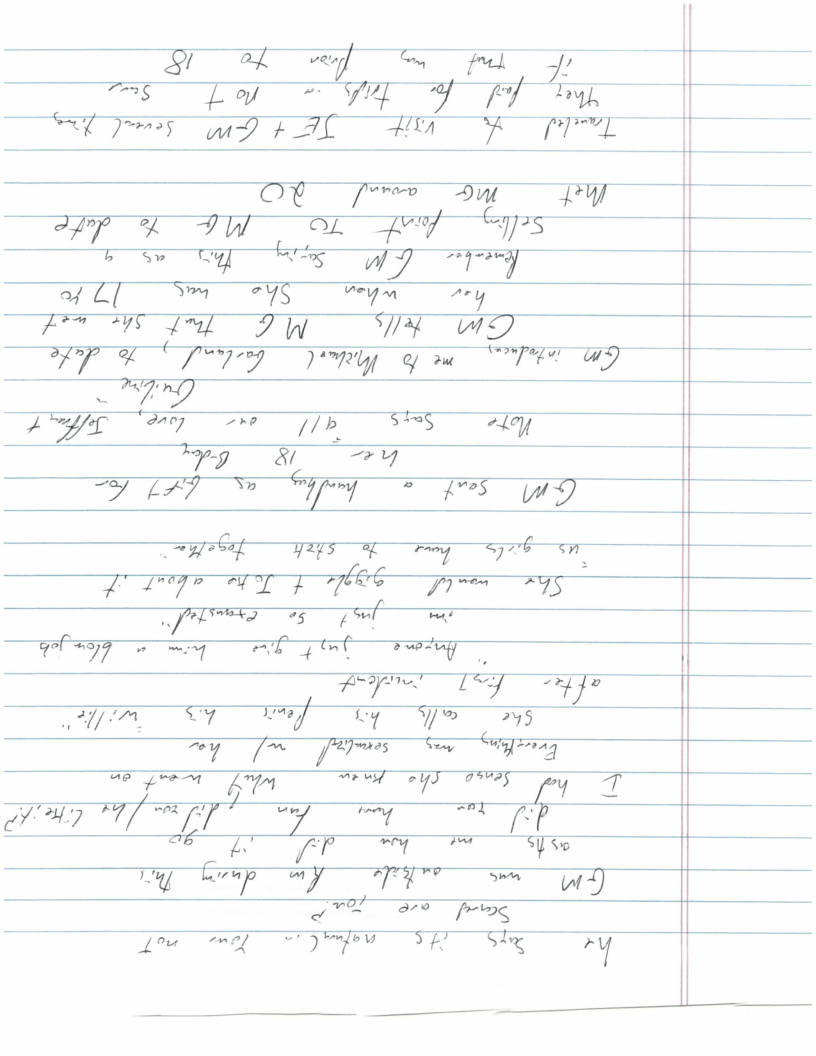 he says its natural .. Your not
Scared are you?
GM was outside Rm during this
asks me how did it go
did you have fun, did you/he like it?
I had sense she knew what went on
Everything was sexualized w/ her
she calls his penis his "willie"
after first incident
"Anyone just give him a blow job
im just so exausted"
She would giggle + Joke about it
"us girls have to stick together"
GM sent a handbag as Gift for
her 18 B-day
Note says "all our love, Jeffrey +
Guiline"
GM introduces me to Michael Garland, to date
GM tells MG that she met
her when she was 17 yo
Remember GM saying this as a
Selling point TO MG to date
Met MG around 20
Traveled to visit JE + GM several time
they paid for trips .. not sure
if that was prior to 18